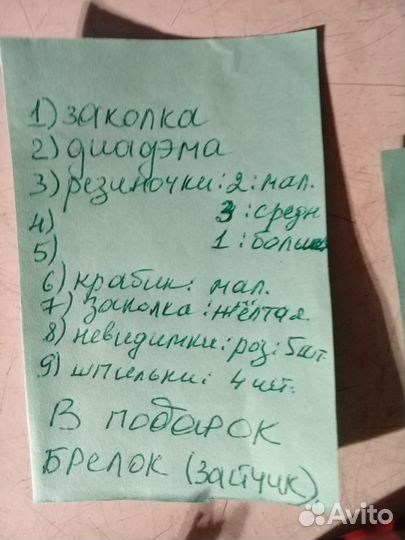 1) заколка
2) диадэма
3) резиночки: 2: мал.
4) 3: средн
5) 1: больш
6) крабик: мал.
7) заколка: жёлтая
8) невидимки: роз: 5 шт.
9) шпильки: 4 шт.
В подарок
БРЕЛОК (зайчик)
Avito